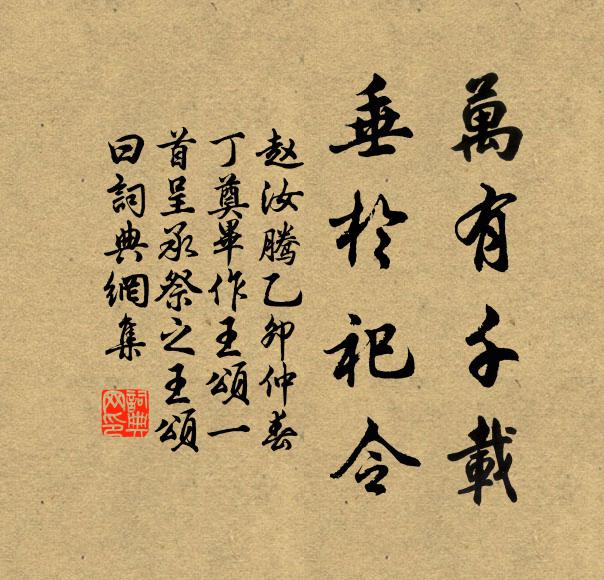 萬有千載
垂於祀令
赵汝騰乙卯仲春
丁奠畢作王頌一
首呈承祭之王頌
曰詞典網集
詞典
网印